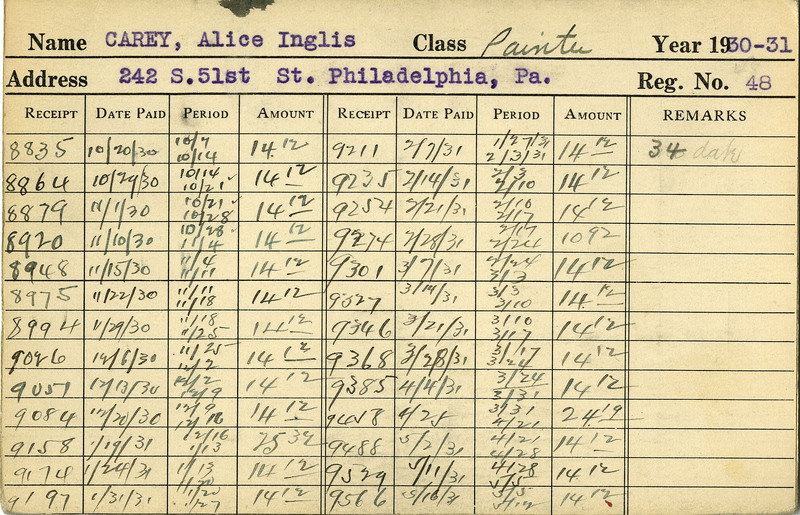 Name CAREY, Alice Inglis Class Painter Year 1930-31
Address 242 S.51st St. Philadelphia, Pa. Reg. No. 48
RECEIPT DATE PAID PERIOD AMOUNT RECEIPT DATE PAID PERIOD AMOUNT REMARKS
8835 10/20/30 10/7 10/14 14 12 9211 2/7/31 1/27/31 2/3/31 14 12 34
8864 10/29/30 10/14 10/21 14 12 9235 2/14/31 2/3 2/10 14 12
8879 11/1/30 10/21 10/28 14 12 9254 2/21/31 2/10 2/17 14 12
8920 11/10/30 10/28 11/4 14 12 9274 2/28/31 2/17 2/24 10 92
8948 11/15/30 11/4 11/11 14 12 9301 3/7/31 2/24 3/3 14 12
8975 11/22/30 11/11 11/18 14 12 9327 3/14/31 3/3 3/10 14 12
8994 11/29/30 11/18 11/25 14 12 9346 3/21/31 3/10 3/17 14 12
9026 12/6/30 11/25 12/2 14 12 9368 3/28/31 3/17 3/24 14 12
9051 12/13/30 12/2 12/9 14 12 9385 4/4/31 3/24 3/31 14 12
9084 12/20/30 12/9 12/16 14 12 9458 4/25 3/31 4/21 24 19
9158 1/19/31 12/16 1/13 25 32 9488 5/2/31 4/21 4/28 14 12
9174 1/24/31 1/13 1/20 14 12 9529 5/11/31 4/28 5/5 14 12
9197 1/31/31 1/20 1/27 14 12 9566 5/16/31 5/5 5/12 14 12